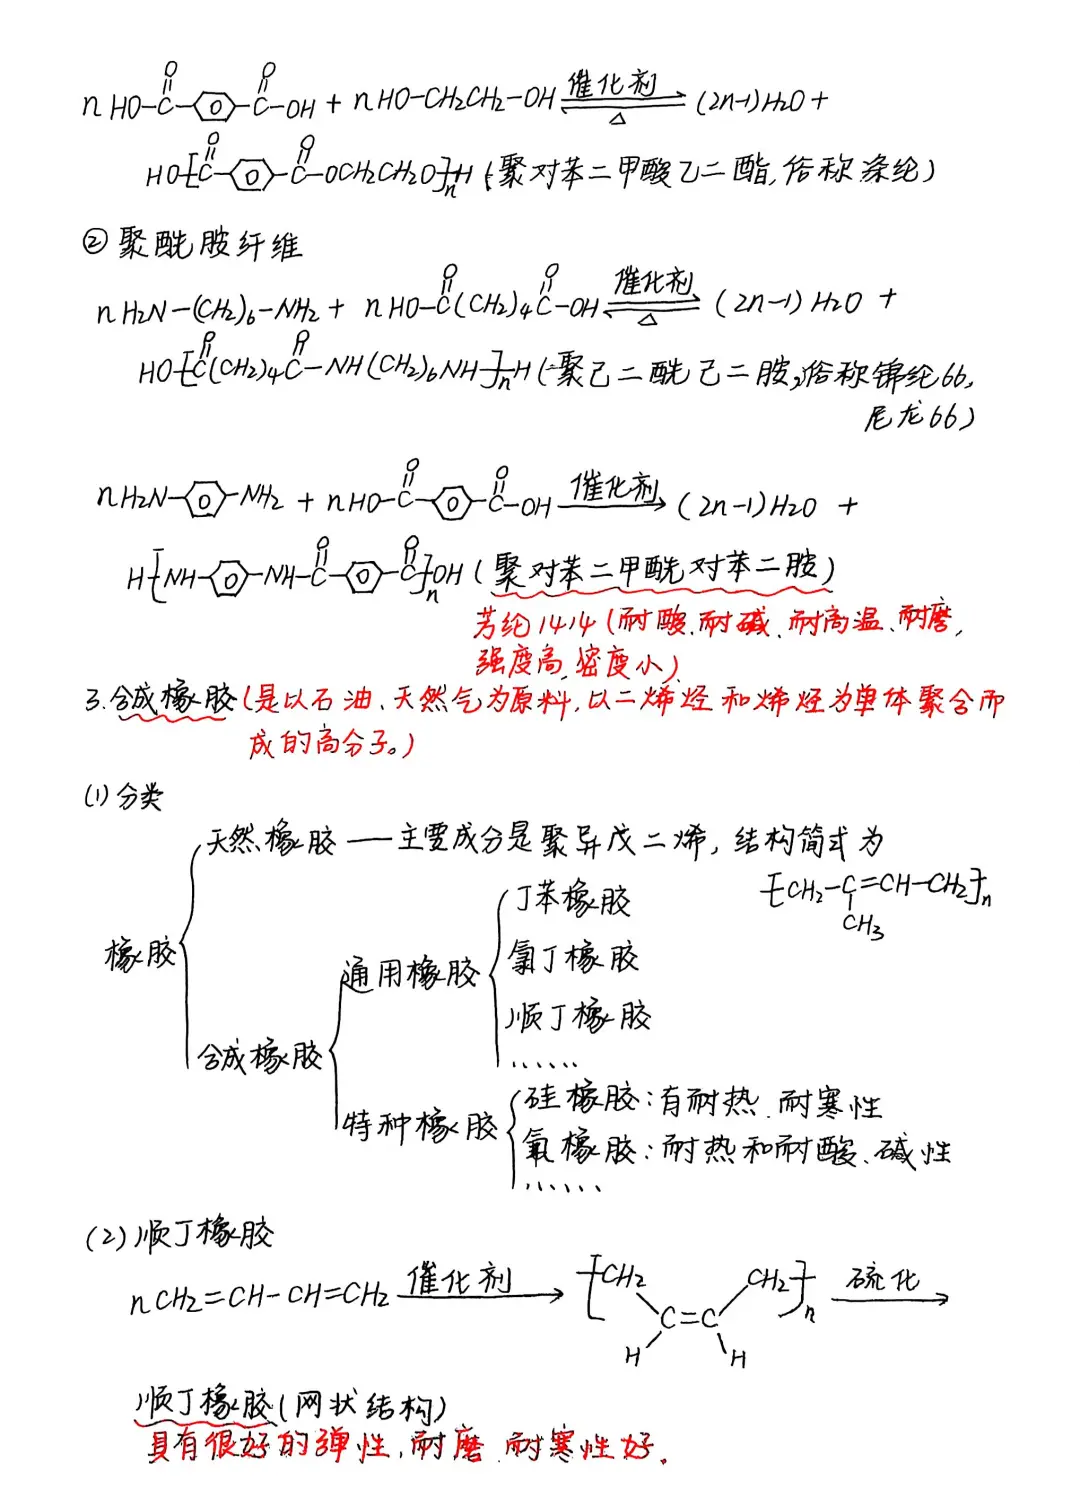 nHO-C(=O)-⌬-C(=O)-OH + nHO-CH₂CH₂-OH ⇌[催化剂/△] (2n-1)H₂O +
HO-[C(=O)-⌬-C(=O)-OCH₂CH₂O]ₙ-H (聚对苯二甲酸乙二酯,俗称涤纶)
②聚酰胺纤维
nH₂N-(CH₂)₆-NH₂ + nHO-C(=O)(CH₂)₄C(=O)-OH ⇌[催化剂/△] (2n-1)H₂O +
HO-[C(=O)(CH₂)₄C(=O)-NH(CH₂)₆NH]ₙ-H (聚己二酰己二胺,俗称锦纶66,
尼龙66)
nH₂N-⌬-NH₂ + nHO-C(=O)-⌬-C(=O)-OH —催化剂→ (2n-1)H₂O +
H-[NH-⌬-NH-C(=O)-⌬-C(=O)]ₙ-OH (聚对苯二甲酰对苯二胺)
芳纶1414(耐酸、耐碱、耐高温、耐磨,
强度高,密度小)
3.合成橡胶(是以石油、天然气为原料,以二烯烃和烯烃为单体聚合而
成的高分子。)
(1)分类
天然橡胶——主要成分是聚异戊二烯,结构简式为
-[CH₂-C(CH₃)=CH-CH₂]ₙ-
丁苯橡胶
橡胶
通用橡胶
氯丁橡胶
顺丁橡胶
合成橡胶
......
硅橡胶:有耐热、耐寒性
特种橡胶
氟橡胶:耐热和耐酸、碱性
......
(2)顺丁橡胶
nCH₂=CH-CH=CH₂ —催化剂→ -[CH₂ CH₂]ₙ- —硫化→
C=C
H H
顺丁橡胶(网状结构)
具有很好的弹性,耐磨、耐寒性好.